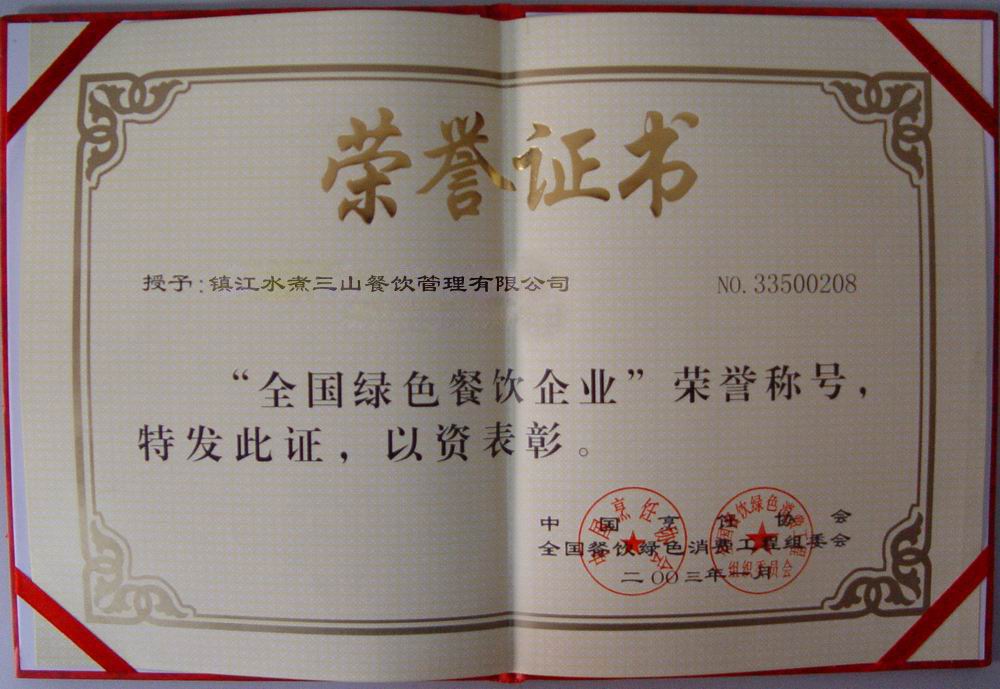 荣誉证书
授予:镇江水煮三山餐饮管理有限公司 NO. 33500208
“全国绿色餐饮企业”荣誉称号,
特发此证,以资表彰。
中国烹饪协会
全国餐饮绿色消费工程组委会
二OO三年一月
中国烹饪协会
全国餐饮绿色消费工程
组织委员会